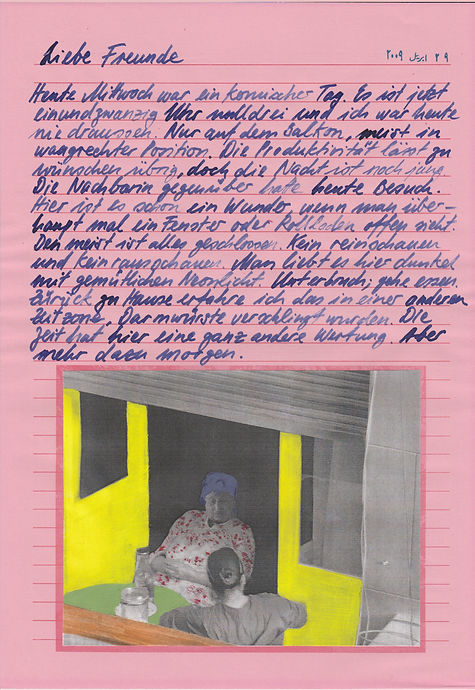 Liebe Freunde
٢٩ ابريل ٢٠٠٩
Heute Mittwoch war ein komischer Tag. Es ist jetzt
einundzwanzig Uhr nulldrei und ich war heute
nie draussen. Nur auf dem Balkon, meist in
waagrechter Position. Die Produktivität lässt zu
wünschen übrig, doch die Nacht ist noch jung.
Die Nachbarin gegenüber hatte heute Besuch.
Hier ist es schon ein Wunder, wenn man über-
haupt mal ein Fenster oder Rollladen offen sieht.
Den meist ist alles geschlossen. Kein reinschauen
und kein rausschauen. Man liebt es hier dunkel
mit gemütlichen Neonlicht. Unterbruch, gehe essen.
Zürück zu Hause erfahre ich das in einer anderen
Zeitzone, Darmwürste verschlingt wurden. Die
Zeit hat hier eine ganz andere Wertung. Aber
mehr dazu morgen.